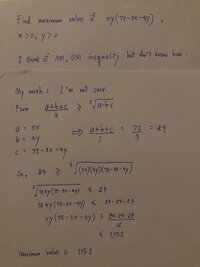 Find maximum value of xy(72-3x-4y),
x>0, y>0
I think of AM, GM inequality but don't know how.
My work: I'm not sure.
From a+b+c/3 ≥ ∛a·b·c
a = 3x
b = 4y ⟹ a+b+c/3 = 72/3 = 24
c = 72-3x-4y
So, 24 ≥ ∛(3x)(4y)(72-3x-4y)
∛12xy(72-3x-4y) ≤ 24
12xy(72-3x-4y) ≤ 24·24·24
xy(72-3x-4y) ≤ 24·24·24/12
≤ 1,152
Maximum value is 1152